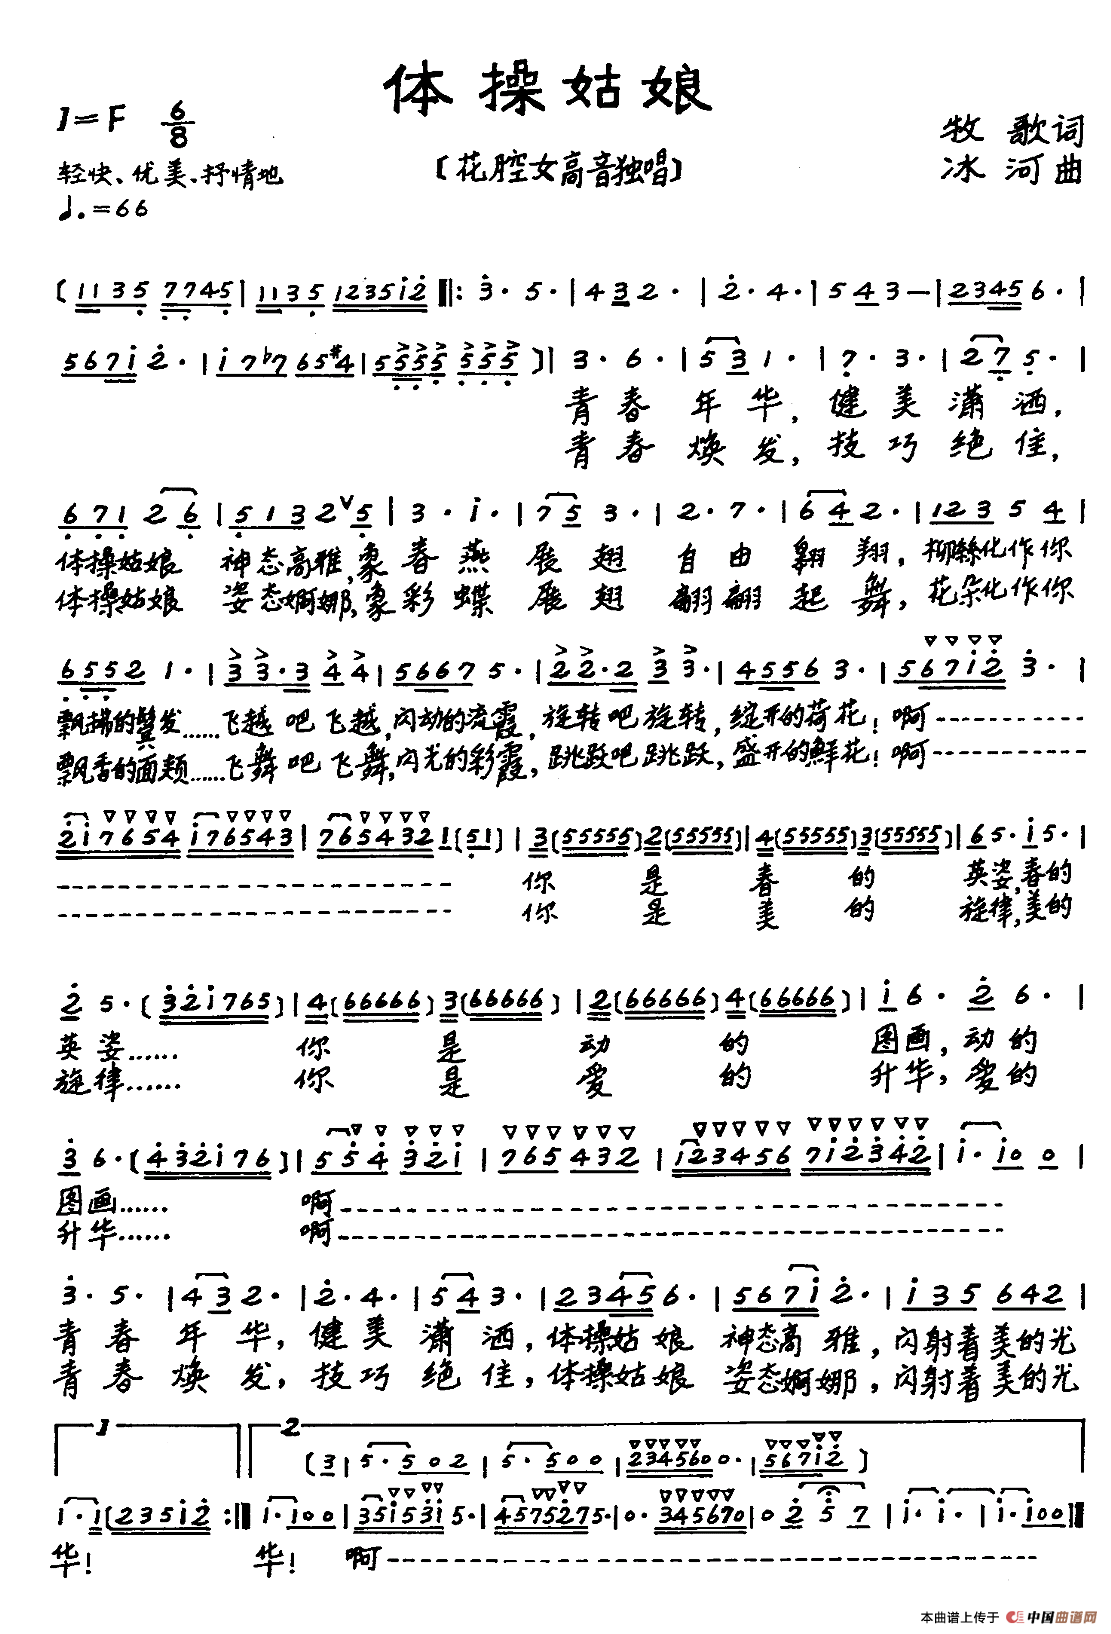 体操姑娘
1=F 6/8
牧歌词
轻快、优美、抒情地
〔花腔女高音独唱〕
冰河曲
♩.=66
青春年华，健美潇洒，
青春焕发，技巧绝佳，
体操姑娘 神态高雅，象春燕展翅自由翱翔，柳絲化作你
体操姑娘 姿态婀娜，象彩蝶展翅翩翩起舞，花朵化作你
飘拂的鬓发……飞越吧飞越，闪动的流霞，旋转吧旋转，绽开的荷花！啊
飘香的面颊……飞舞吧飞舞，闪光的彩霞，跳跃吧跳跃，盛开的鲜花！啊
你是春的英姿，春的
你是美的旋律，美的
英姿…… 你是动的图画，动的
旋律…… 你是爱的升华，爱的
图画…… 啊
升华…… 啊
青春年华，健美潇洒，体操姑娘神态高雅，闪射着美的光
青春焕发，技巧绝佳，体操姑娘姿态婀娜，闪射着美的光
1 2
华！ 华！ 啊
本曲谱上传于 中国曲谱网